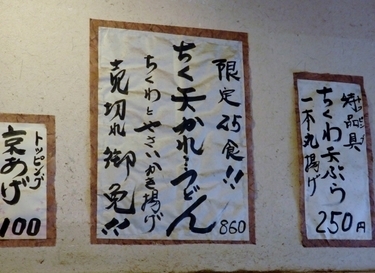 限定25食!!
ちく天かれーうどん
860
ちくわとやさいかき揚げ
売切れ御免!!
単品具
ちくわ天ぷら
一本丸揚げ
250円
トッピング
京あげ
100